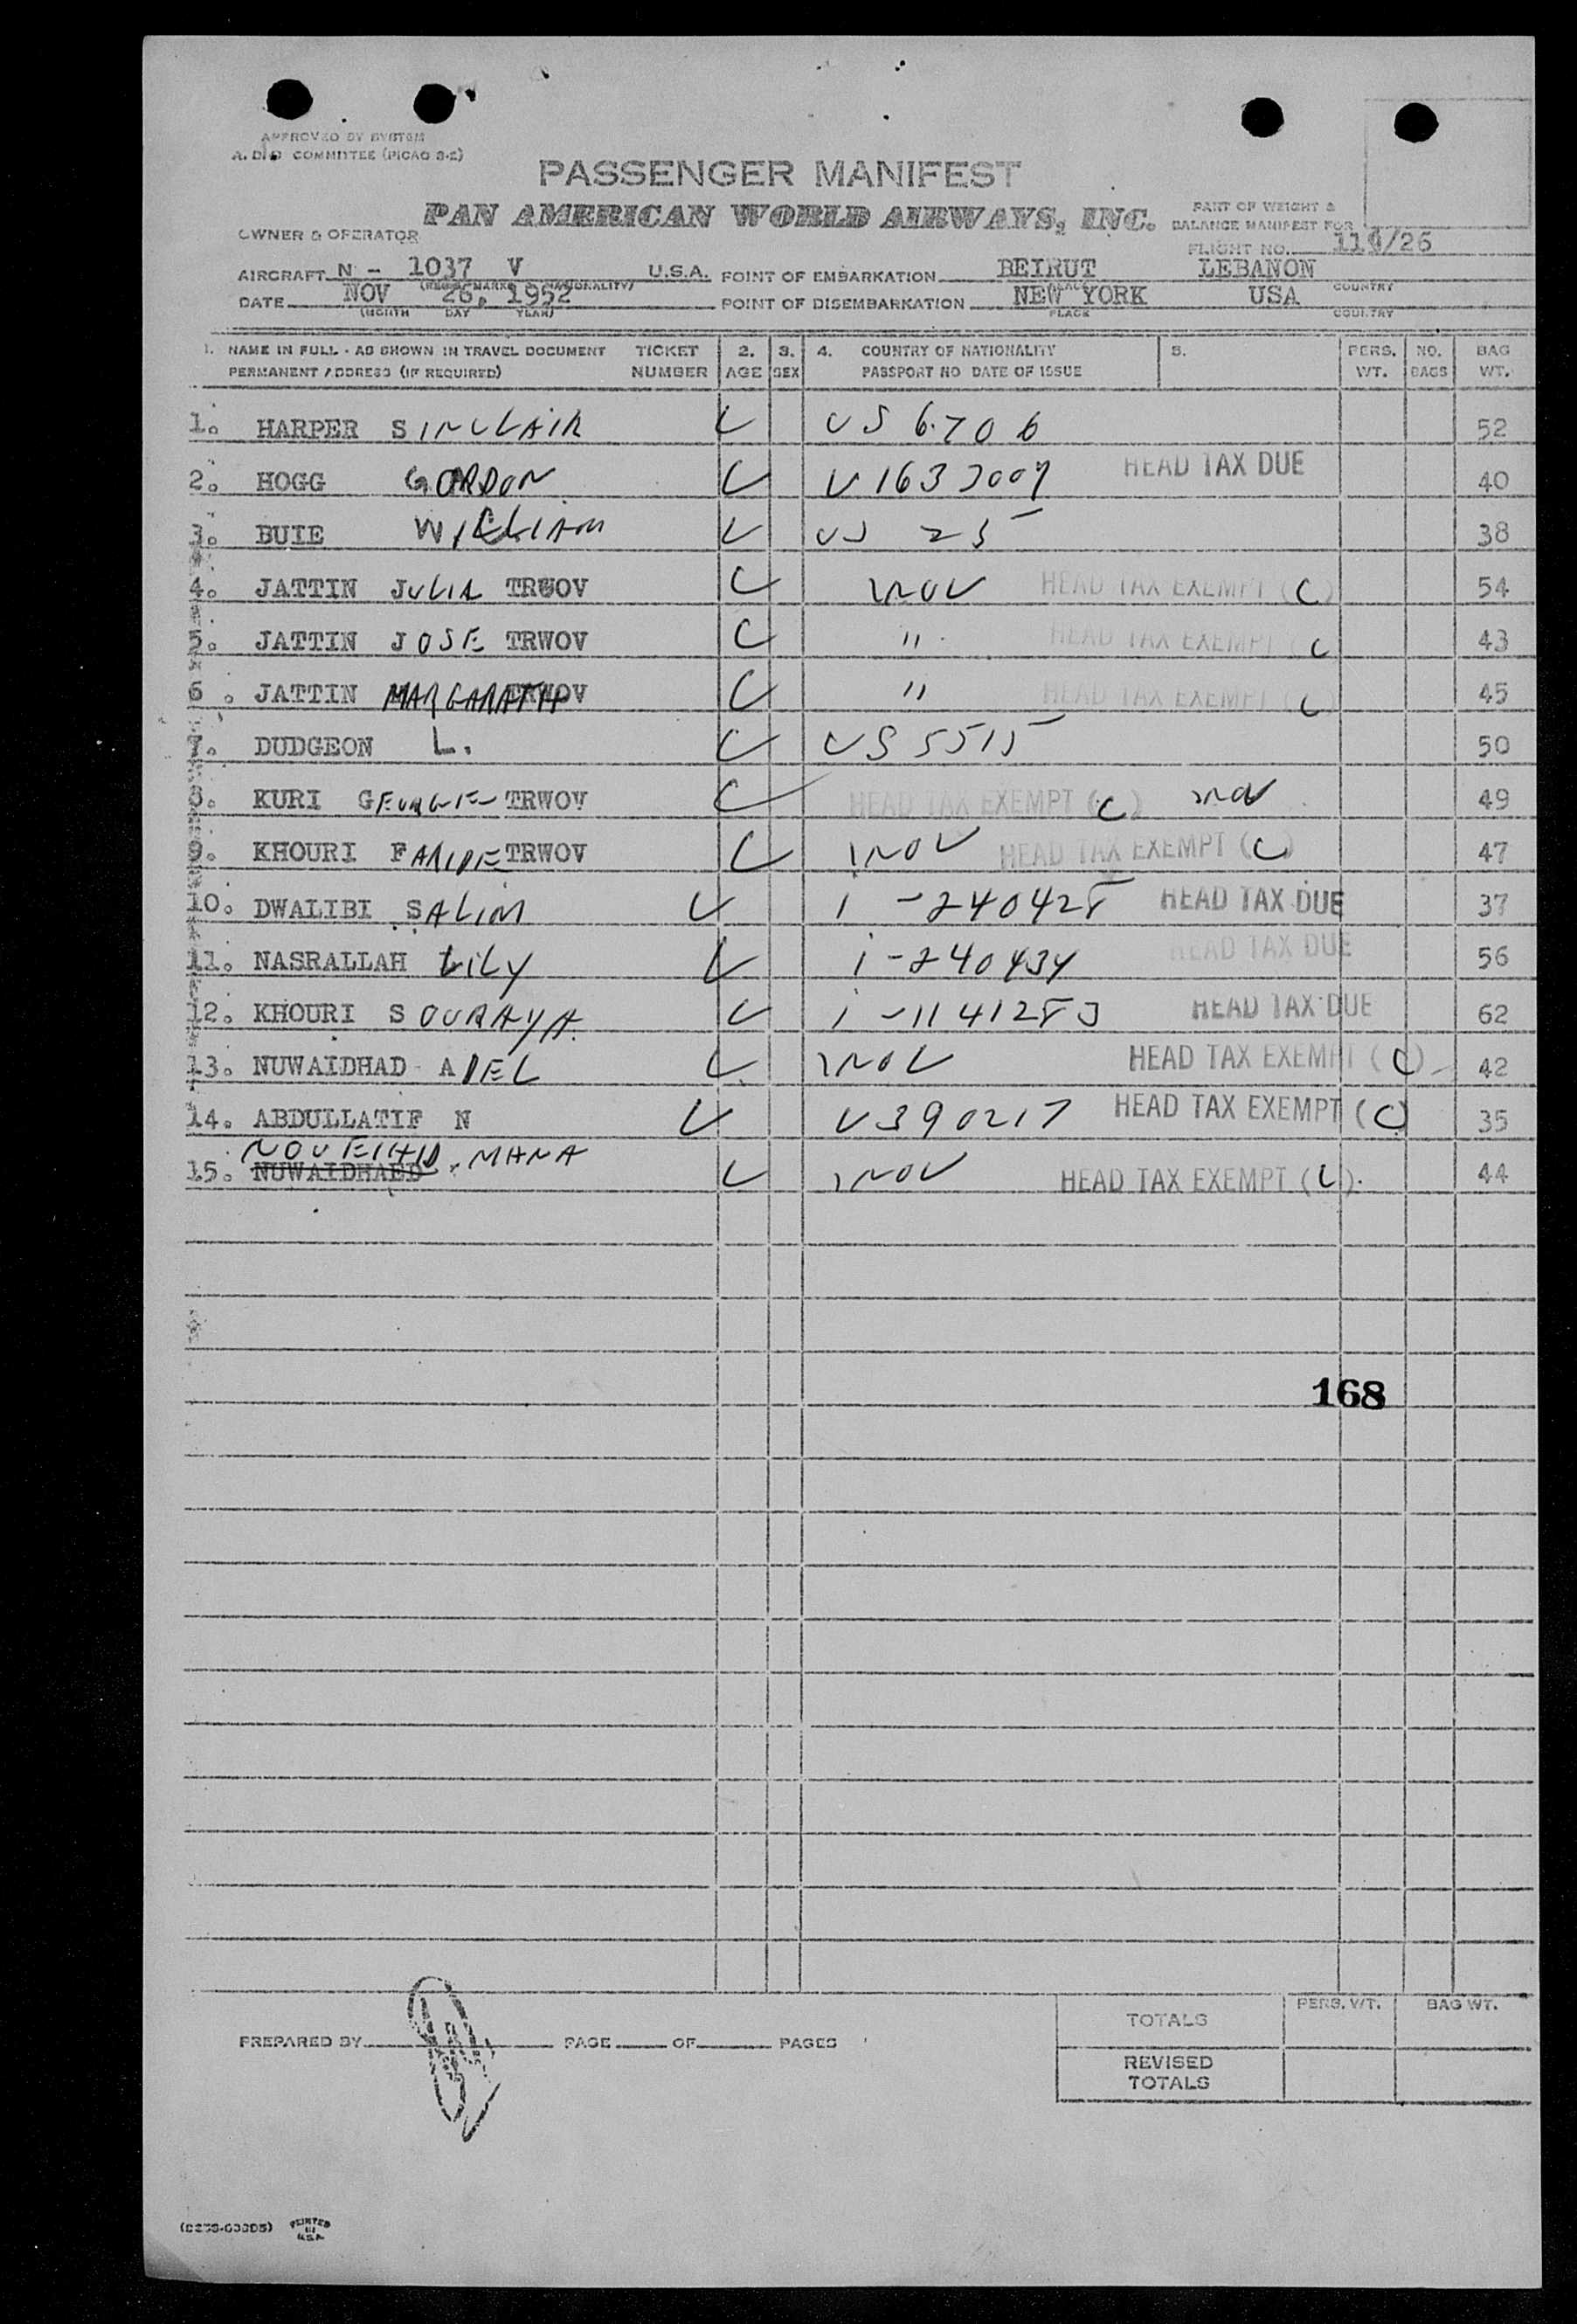 APPROVED BY SYSTEM
A. D. & D COMMITTEE (PICAO 3-2)
PASSENGER MANIFEST
PAN AMERICAN WORLD AIRWAYS, INC.
PART OF WEIGHT &
BALANCE MANIFEST FOR
OWNER & OPERATOR
FLIGHT NO. /26
AIRCRAFT N - 1037 V U.S.A. POINT OF EMBARKATION BEIRUT LEBANON
PLACE COUNTRY
DATE NOV 26, 1952 POINT OF DISEMBARKATION NEW YORK USA
(MONTH DAY YEAR) PLACE COUNTRY
1. NAME IN FULL - AS SHOWN IN TRAVEL DOCUMENT TICKET 2. 3. 4. COUNTRY OF NATIONALITY 5. PERS. NO. BAG
PERMANENT ADDRESS (IF REQUIRED) NUMBER AGE SEX PASSPORT NO DATE OF ISSUE WT. BAGS WT.
1. HARPER SINCLAIR US 6706 52
2. HOGG GORDON V1633007 HEAD TAX DUE 40
3. BUIE WILLIAM US 25 38
4. JATTIN JULIA TRWOV INOV HEAD TAX EXEMPT (C) 54
5. JATTIN JOSE TRWOV " HEAD TAX EXEMPT (C 43
6. JATTIN MARGARATH TRWOV " HEAD TAX EXEMPT (C 45
7. DUDGEON L. US 5515 50
8. KURI GEORGIE TRWOV HEAD TAX EXEMPT (C) INOV 49
9. KHOURI FARIDE TRWOV INOV HEAD TAX EXEMPT (C) 47
10. DWALIBI SALIM I-240428 HEAD TAX DUE 37
11. NASRALLAH LILY I-240434 HEAD TAX DUE 56
12. KHOURI SOURAYA I-1141283 HEAD TAX DUE 62
13. NUWAIDHAD ADEL INOV HEAD TAX EXEMPT (C) 42
14. ABDULLATIF N V390217 HEAD TAX EXEMPT (C) 35
NOUEIHID. MANA
15. NUWAIDHAED INOV HEAD TAX EXEMPT (C). 44
168
PERS. WT. BAG WT.
TOTALS
PREPARED BY PAGE OF PAGES
REVISED
TOTALS
PRINTED
IN
U.S.A.